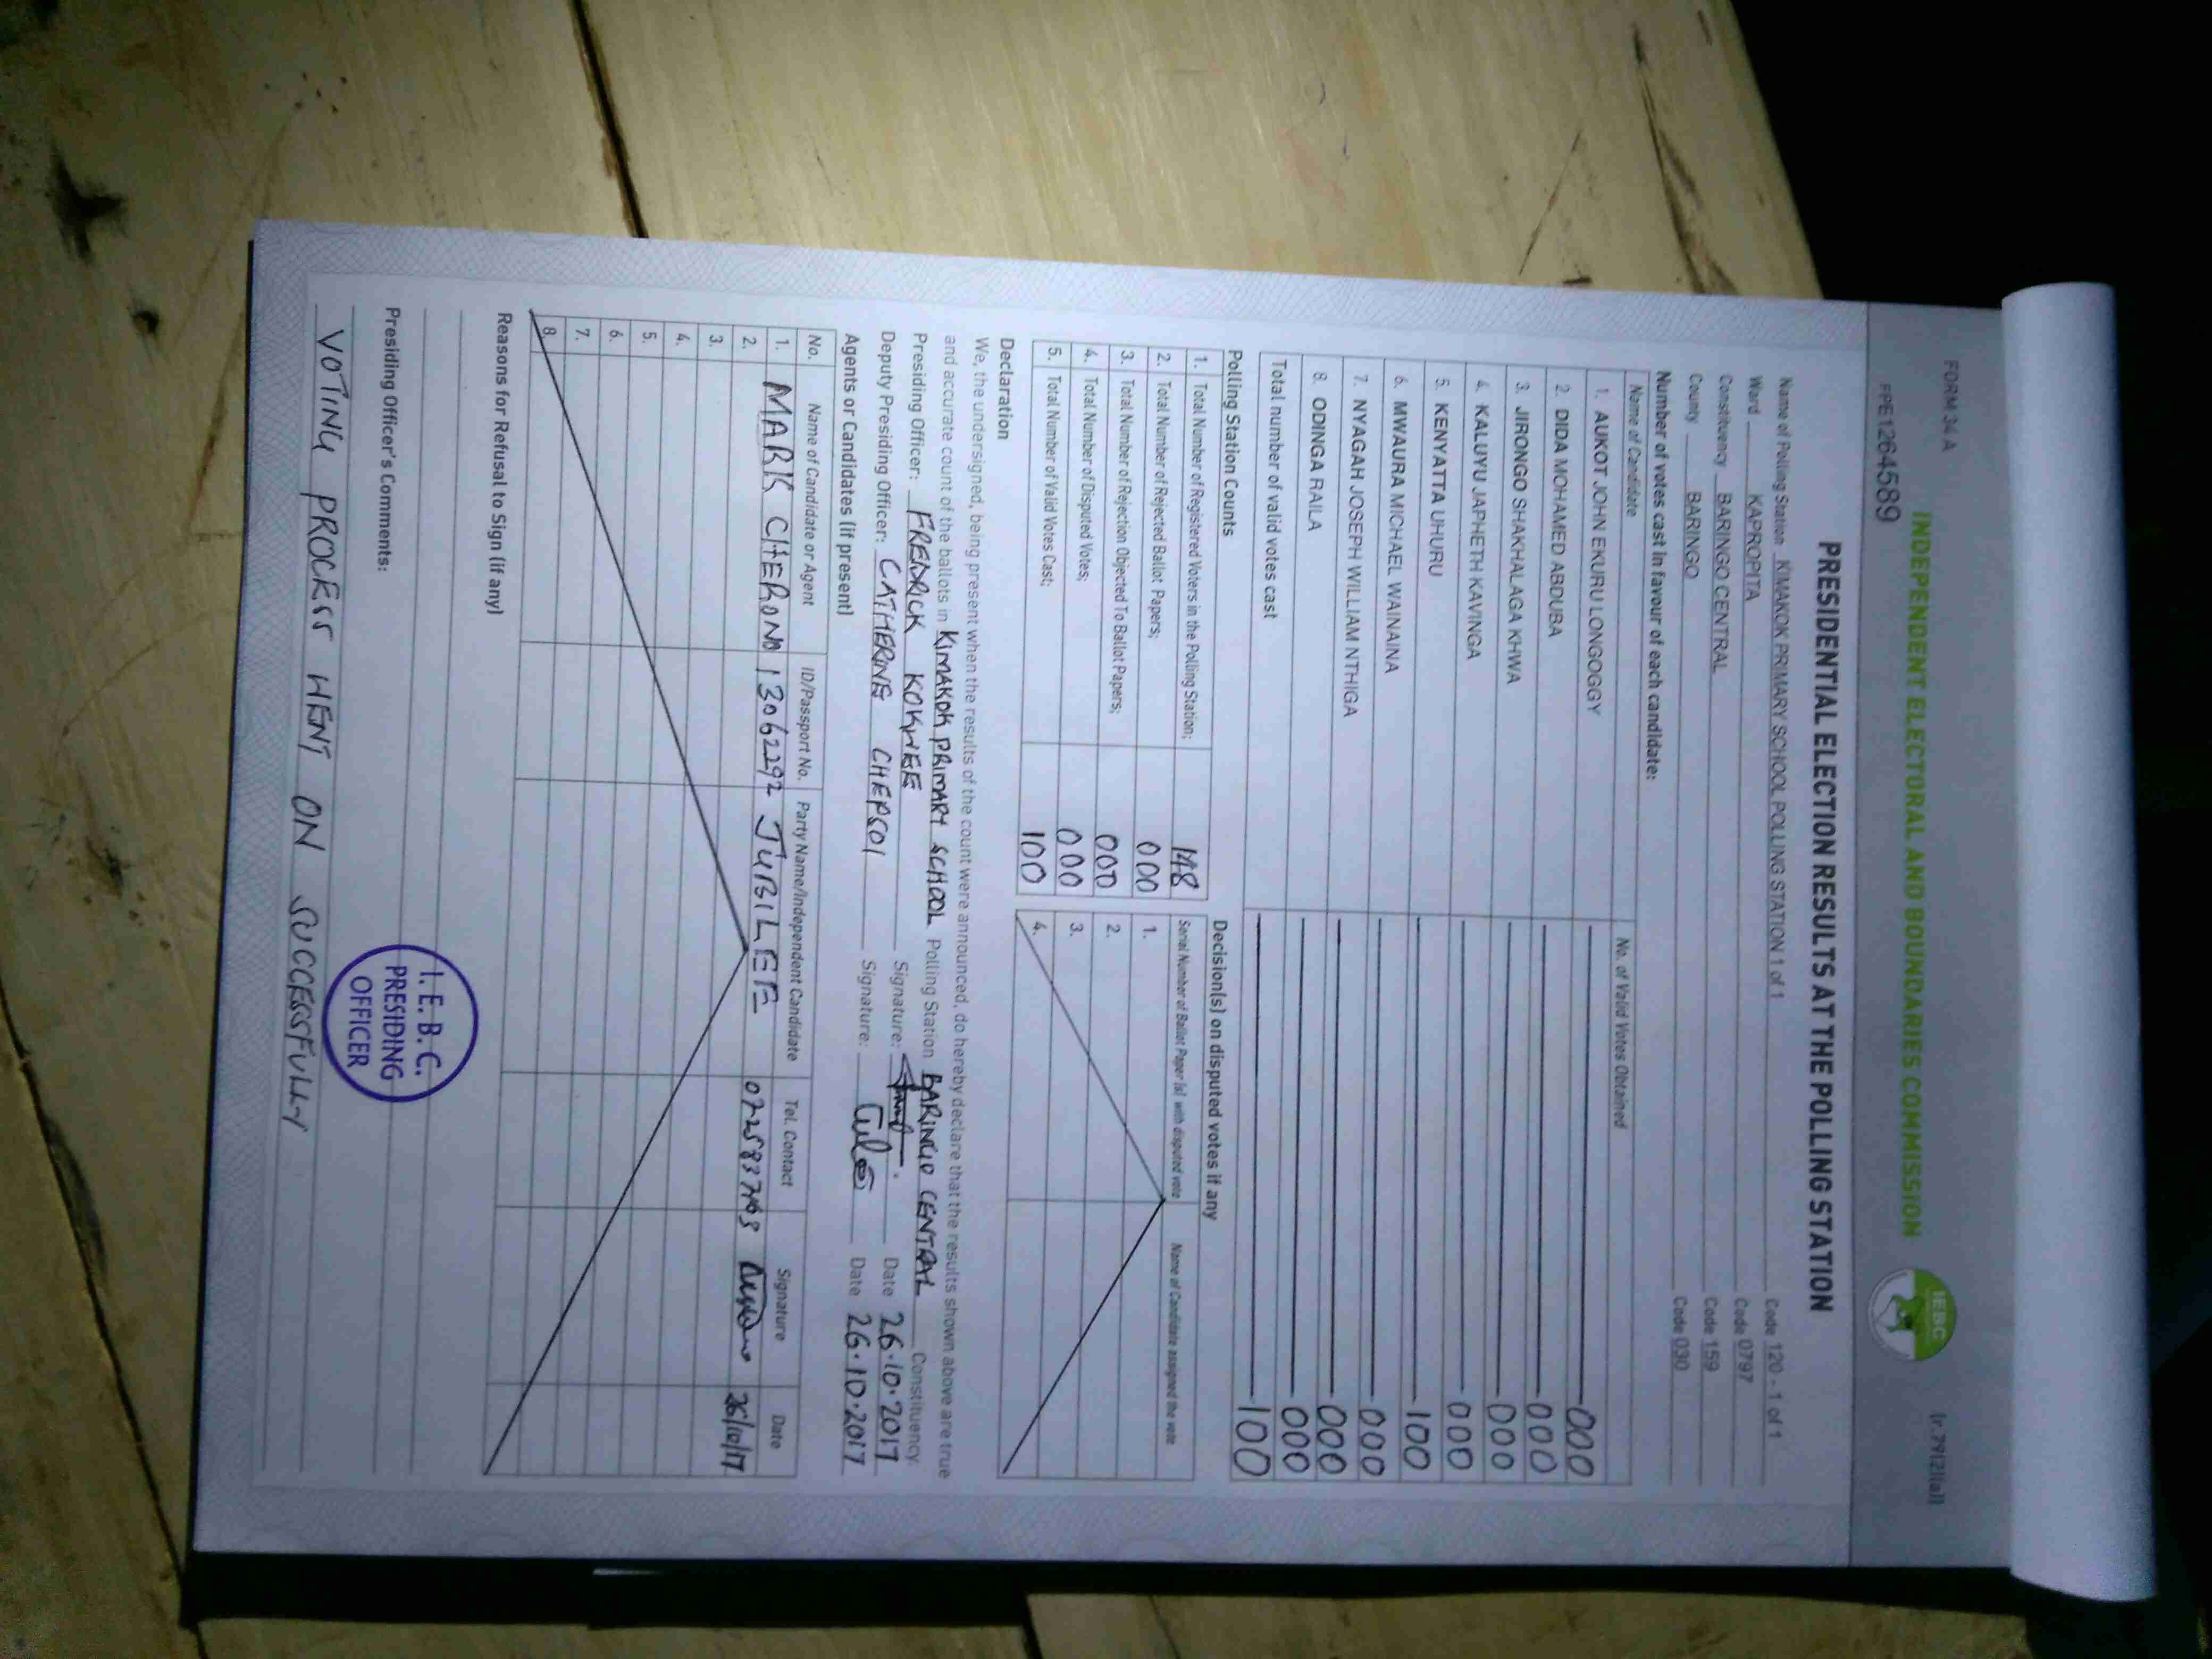 FORM 34 A
(r.79(2)(a))
INDEPENDENT ELECTORAL AND BOUNDARIES COMMISSION
IEBC
PRESIDENTIAL ELECTION RESULTS AT THE POLLING STATION
Name of Polling Station KIMAKOK PRIMARY SCHOOL POLLING STATION 1 of 1 Code 120 - 1 of 1
Ward KAPROPITA Code 0797
Constituency BARINGO CENTRAL Code 159
County BARINGO Code 030
Number of votes cast in favour of each candidate:
Name of Candidate No. of Valid Votes Obtained
1. AUKOT JOHN EKURU LONGOGGY 000
2. DIDA MOHAMED ABDUBA 000
3. JIRONGO SHAKHALAGA KHWA 000
4. KALUYU JAPHETH KAVINGA 000
5. KENYATTA UHURU 100
6. MWAURA MICHAEL WAINAINA 000
7. NYAGAH JOSEPH WILLIAM NTHIGA 000
8. ODINGA RAILA 000
Total number of valid votes cast 100
Polling Station Counts
1. Total Number of Registered Voters in the Polling Station; 148
2. Total Number of Rejected Ballot Papers; 000
3. Total Number of Rejection Objected To Ballot Papers; 000
4. Total Number of Disputed Votes; 000
5. Total Number of Valid Votes Cast; 100
Decision(s) on disputed votes if any
Serial Number of Ballot Paper (s) with disputed vote Name of Candidate assigned the vote
1.
2.
3.
4.
Declaration
We, the undersigned, being present when the results of the count were announced, do hereby declare that the results shown above are true
and accurate count of the ballots in KIMAKOK PRIMARY SCHOOL Polling Station BARINGO CENTRAL Constituency
Presiding Officer: FREDRICK KOKWEE Signature: Date 26.10.2017
Deputy Presiding Officer: CATHERINE CHEPSOI Signature: Date 26.10.2017
Agents or Candidates (if present)
No. Name of Candidate or Agent ID/Passport No. Party Name/Independent Candidate Tel. Contact Signature Date
1. MARK CHERONO 13062292 JUBILEE 26/10/17
2.
3.
4.
5.
6.
7.
8.
Reasons for Refusal to Sign (if any)
Presiding Officer's Comments:
VOTING PROCESS WENT ON SUCCESSFULLY
I. E. B. C.
PRESIDING
OFFICER